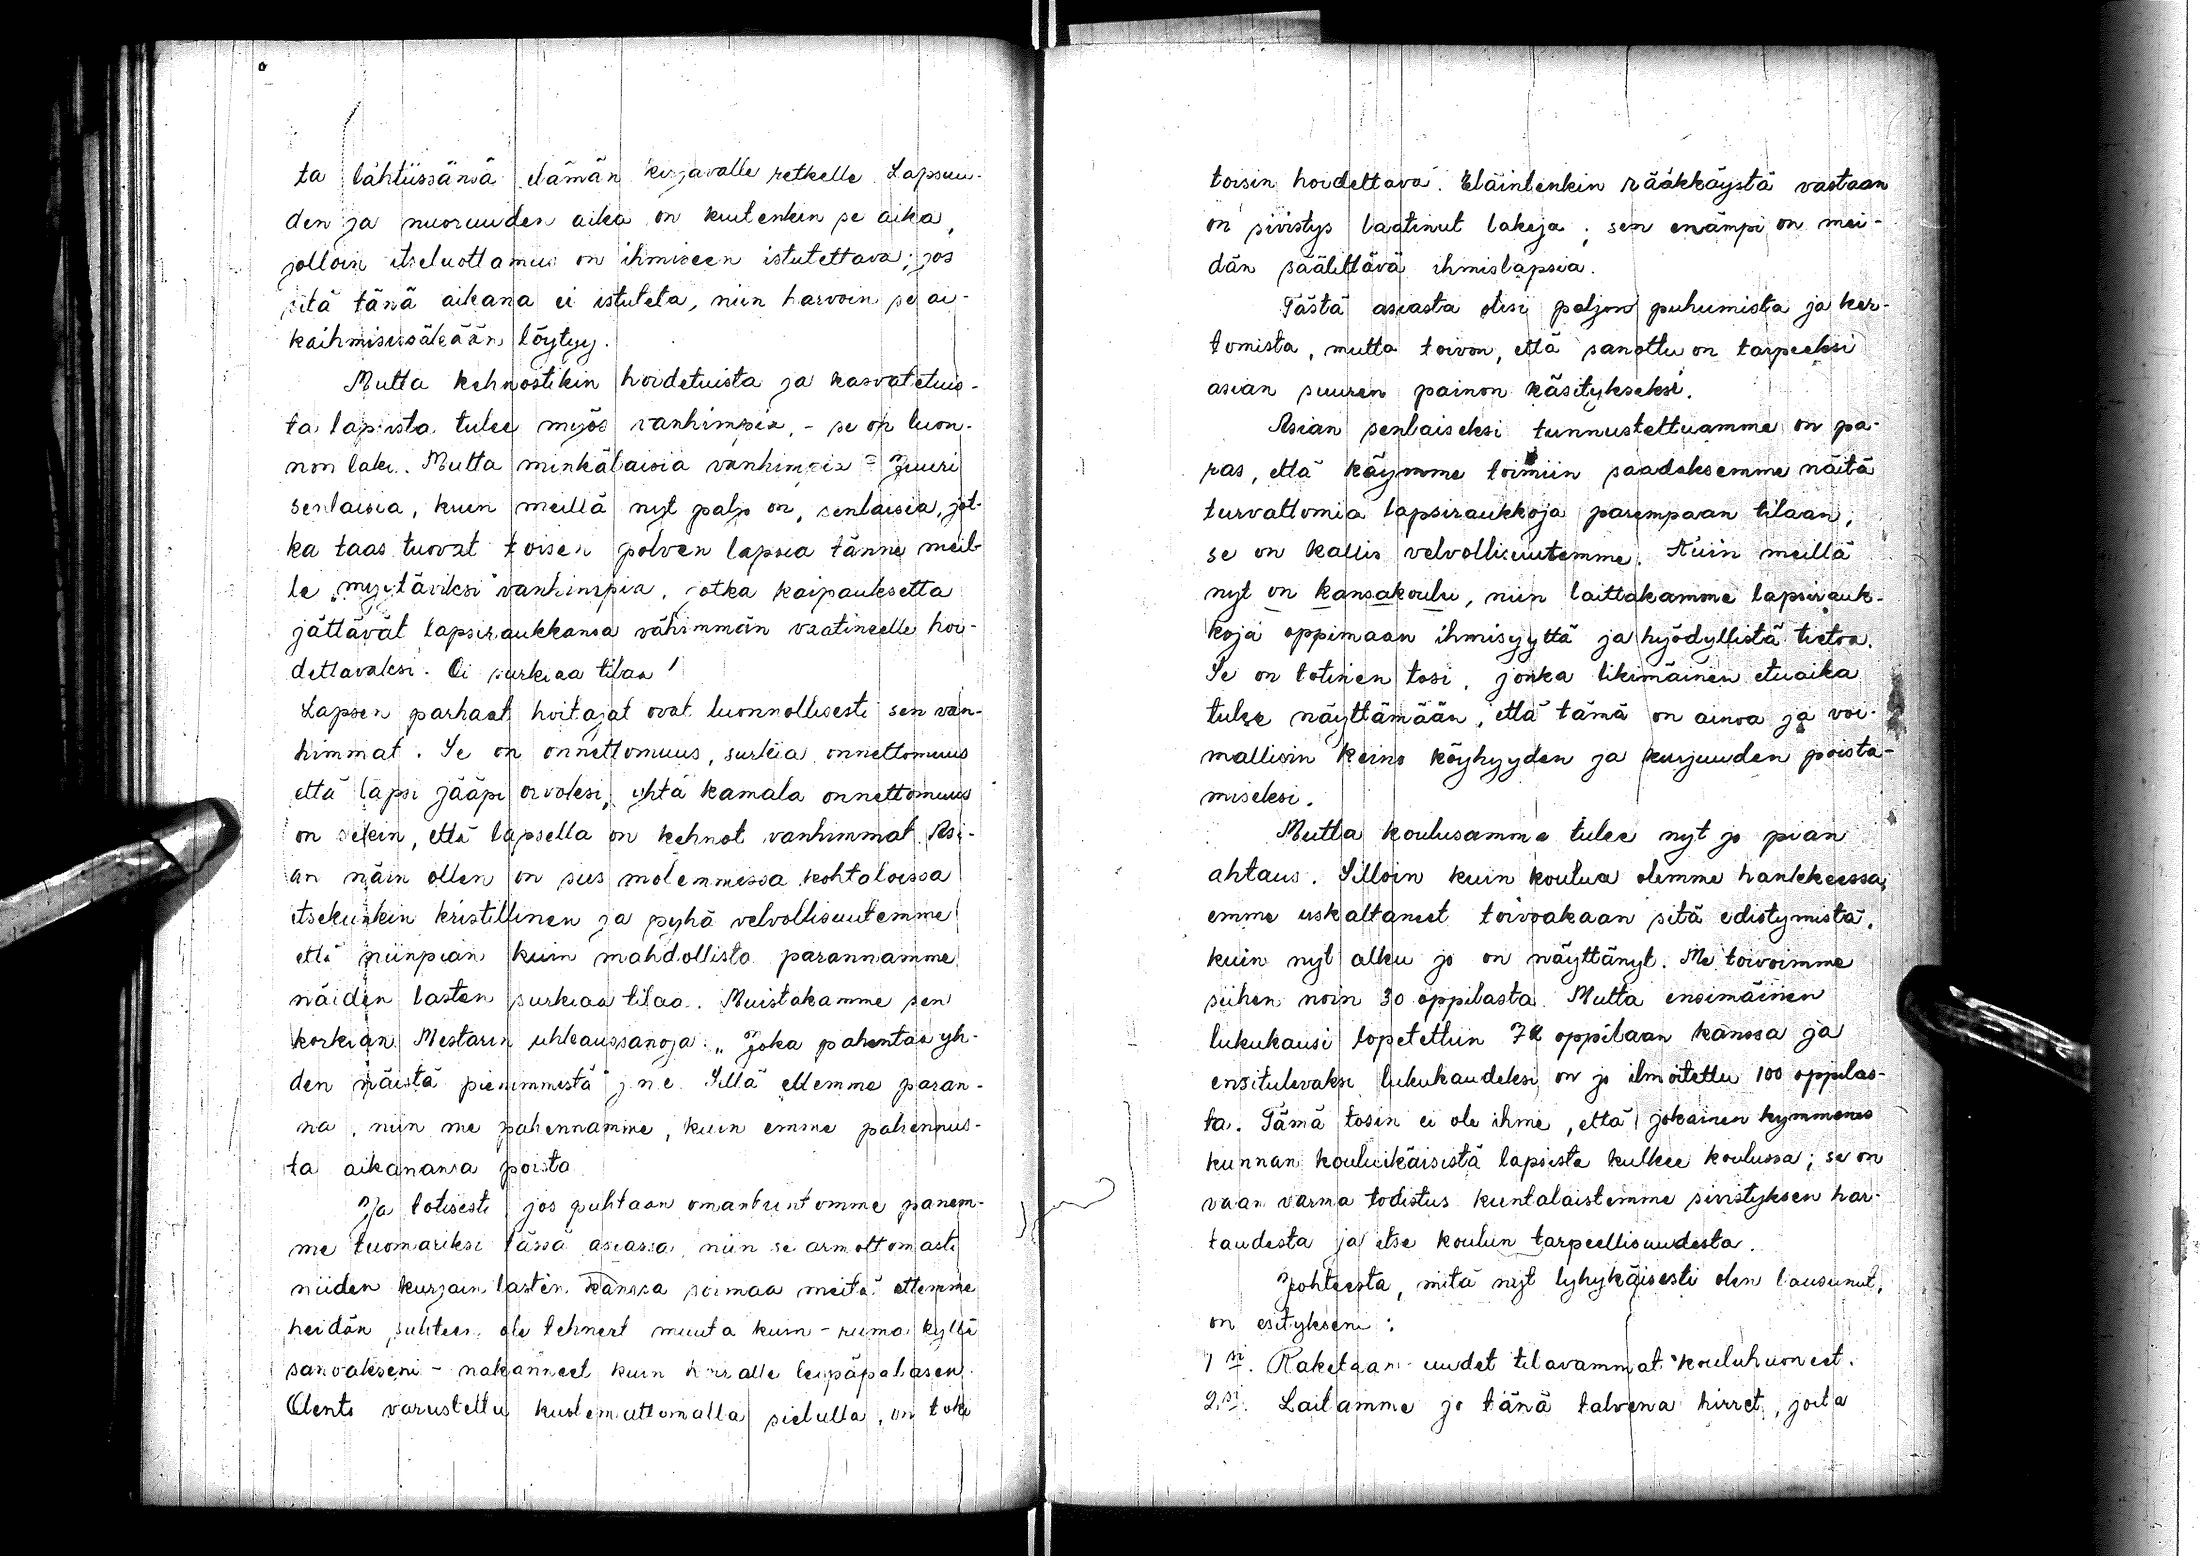 ta lähtiissänsä elämän kirjavalle retkelle. Lapsuu-
den ja nuoruuden aika on kuitenkin se aika,
jolloin itseluottamus on ihmiseen istutettava; jos
sitä tänä aikana ei istuteta, niin harvoin se ai-
kaihmisessäkään löytyy.
Mutta kehnostikin hoidetuista ja kasvatetuis-
ta lapsista tulee myös vanhimpia, - se on luon-
non laki. Mutta minkälaisia vanhimpia? Juuri
senlaisia, kuin meillä nyt paljo on, senlaisia, jot-
ka taas tuovat toisen polven lapsia tänne meil-
le "myytäviksi" vanhimpia, jotka kaipauksetta
jättävät lapsiraukkansa vähimmän vaatineelle hoi-
dettavaksi. Oi surkiaa tilaa!
Lapsen parhaat hoitajat ovat luonnollisesti sen van-
himmat. Se on onnettomuus, surkia onnettomuus
että lapsi jääpi orvoksi, yhtä kamala onnettomuus
on sekin, että lapsella on kehnot vanhimmat. Asi-
an näin ollen on siis molemmissa kohtaloissa
itsekunkin kristillinen ja pyhä velvollisuutemme
että niinpian kuin mahdollista parannamme
näiden lasten surkiaa tilaa. Muistakamme sen
korkian Mestarin uhkaussanoja: „Joka pahentaa yh-
den näistä pienimmistä" j.n.e. Sillä ellemme paran-
na, niin me pahennamme, kuin emme pahennus-
ta aikanansa poista
Ja totisesti jos puhtaan omantuntomme panem-
me tuomariksi tässä asiassa, niin se armottomasti
niiden kurjain lasten kanssa soimaa meitä ettemme
heidän suhteen ole tehneet muuta kuin - ruma kyllä
sanoakseni - nakanneet kuin koiralle leipäpalasen.
Olento varustettu kuolemattomalla sielulla, on toki
toisin hoidettava. Eläintenkin rääkkäystä vastaan
on sivistys laatinut lakeja; sen enämpi on mei-
dän säälittävä ihmislapsia.
Tästä asiasta olisi paljon puhumista ja ker-
tomista, mutta toivon, että sanottu on tarpeeksi
asian suuren painon käsitykseksi.
Asian senlaiseksi tunnustettuamme on pa-
ras, että käymme toimiin saadaksemme näitä
turvattomia lapsiraukkoja parempaan tilaan,
se on kallis velvollisuutemme. Kuin meillä
nyt on kansakoulu, niin laittakamme lapsirauk-
koja oppimaan ihmisyyttä ja hyödyllistä tietoa.
Se on totinen tosi, jonka likimäinen etuaika
tulee näyttämään, että tämä on ainoa ja voi-
mallisin keino köyhyyden ja kurjuuden poista-
miseksi.
Mutta koulusamme tulee nyt jo pian
ahtaus. Silloin kuin koulua olimme hankkeessa,
emme uskaltaneet toivoakaan sitä edistymistä,
kuin nyt alku jo on näyttänyt. Me toivoimme
siihen noin 30 oppilasta. Mutta ensimäinen
lukukausi lopetettiin 72 oppilaan kanssa ja
ensitulevaksi lukukaudeksi on jo ilmoitettu 100 oppilas-
ta. Tämä tosin ei ole ihme, että jokainen kymmenes
kunnan kouluikäisistä lapsista kulkee koulussa; se on
vaan varma todistus kuntalaistemme sivistyksen har-
taudesta ja itse koulun tarpeellisuudesta.
Johteesta, mitä nyt lyhykäisesti olen lausunut,
on esitykseni:
1 si. Raketaan uudet tilavammat kouluhuoneet.
2 si. Laitamme jo tänä talvena hirret, joita